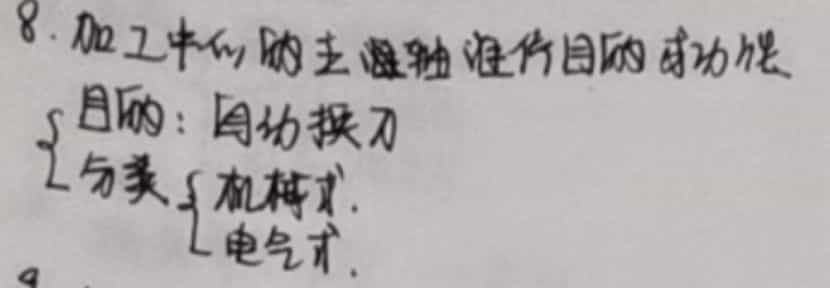 8. 加工中心的主轴准停目的或功能
{ 目的：自动换刀
分类 { 机械式.
电气式.
9.